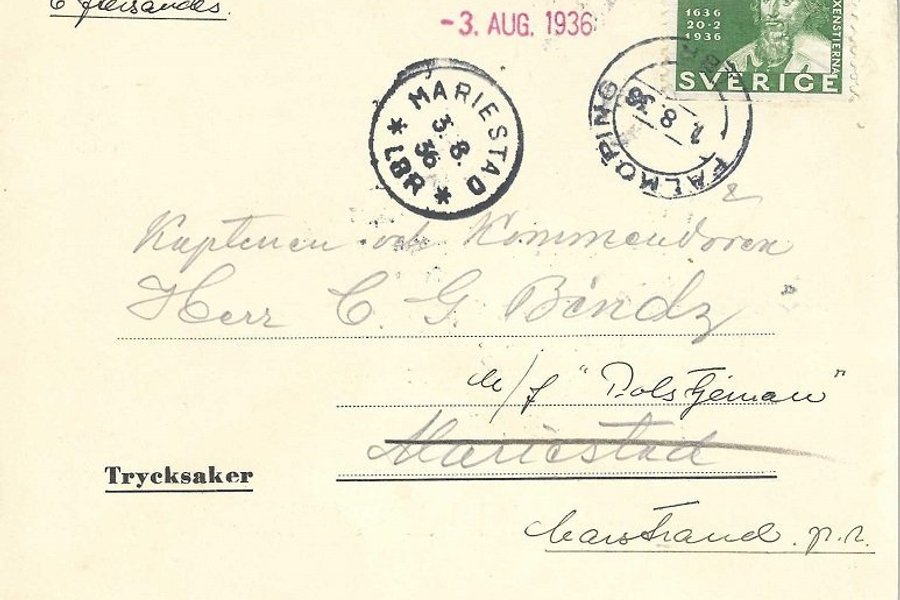 Eftersändes.
-3. AUG. 1936
1636
20·2
1936
OXENSTIERNA
SVERIGE
MARIESTAD
3. 8.
36
* LBR *
FALKÖPING
1.8.36
Kaptenen och Kommendoren
Herr C. G. Bindz
m/f "Polstjernan"
Mariestad
Trycksaker
Marstrand. p.r.